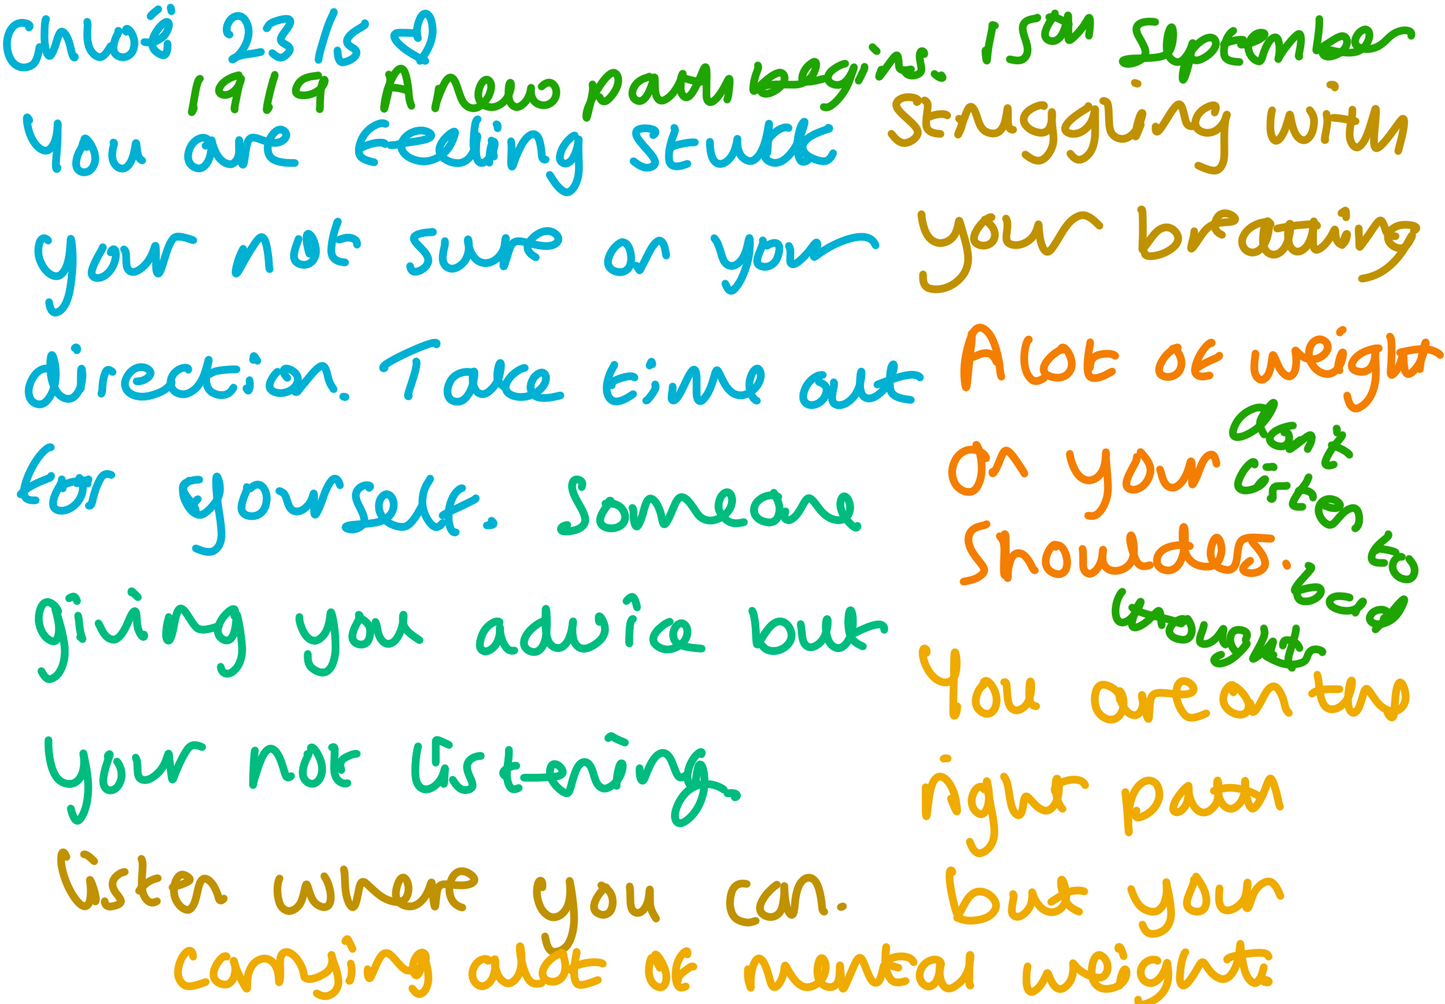 Chloë 23/5 ♡
1919 A new path begins. 15th September
You are feeling stuck
your not sure on your
direction. Take time out
for yourself. Someone
giving you advice but
your not listening
listen where you can.
Struggling with
your breathing
A lot of weight
on your
shoulders.
don't
listen to
bad
thoughts
You are on the
right path
but your
carrying alot of mental weight.